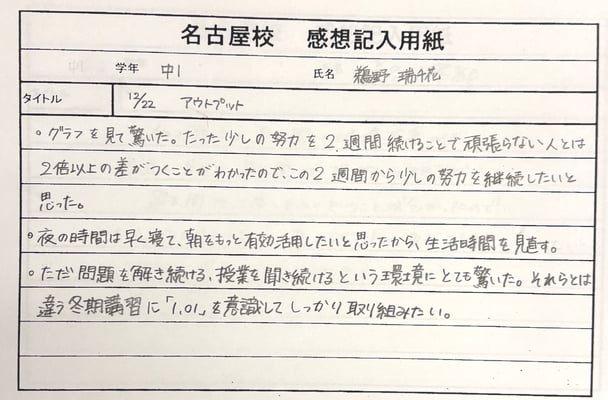 名古屋校 感想記入用紙
学年 中1 氏名 鵜野 瑞千花
タイトル 12/22 アウトプット
・グラフを見て驚いた。たった少しの努力を2週間続けることで頑張らない人とは
2倍以上の差がつくことがわかったので、この2週間から少しの努力を継続したいと
思った。
・夜の時間は早く寝て、朝をもっと有効活用したいと思ったから、生活時間を見直す。
・ただ問題を解き続ける、授業を聞き続けるという環境にとても驚いた。それらとは
違う冬期講習に「1.01」を意識してしっかり取り組みたい。